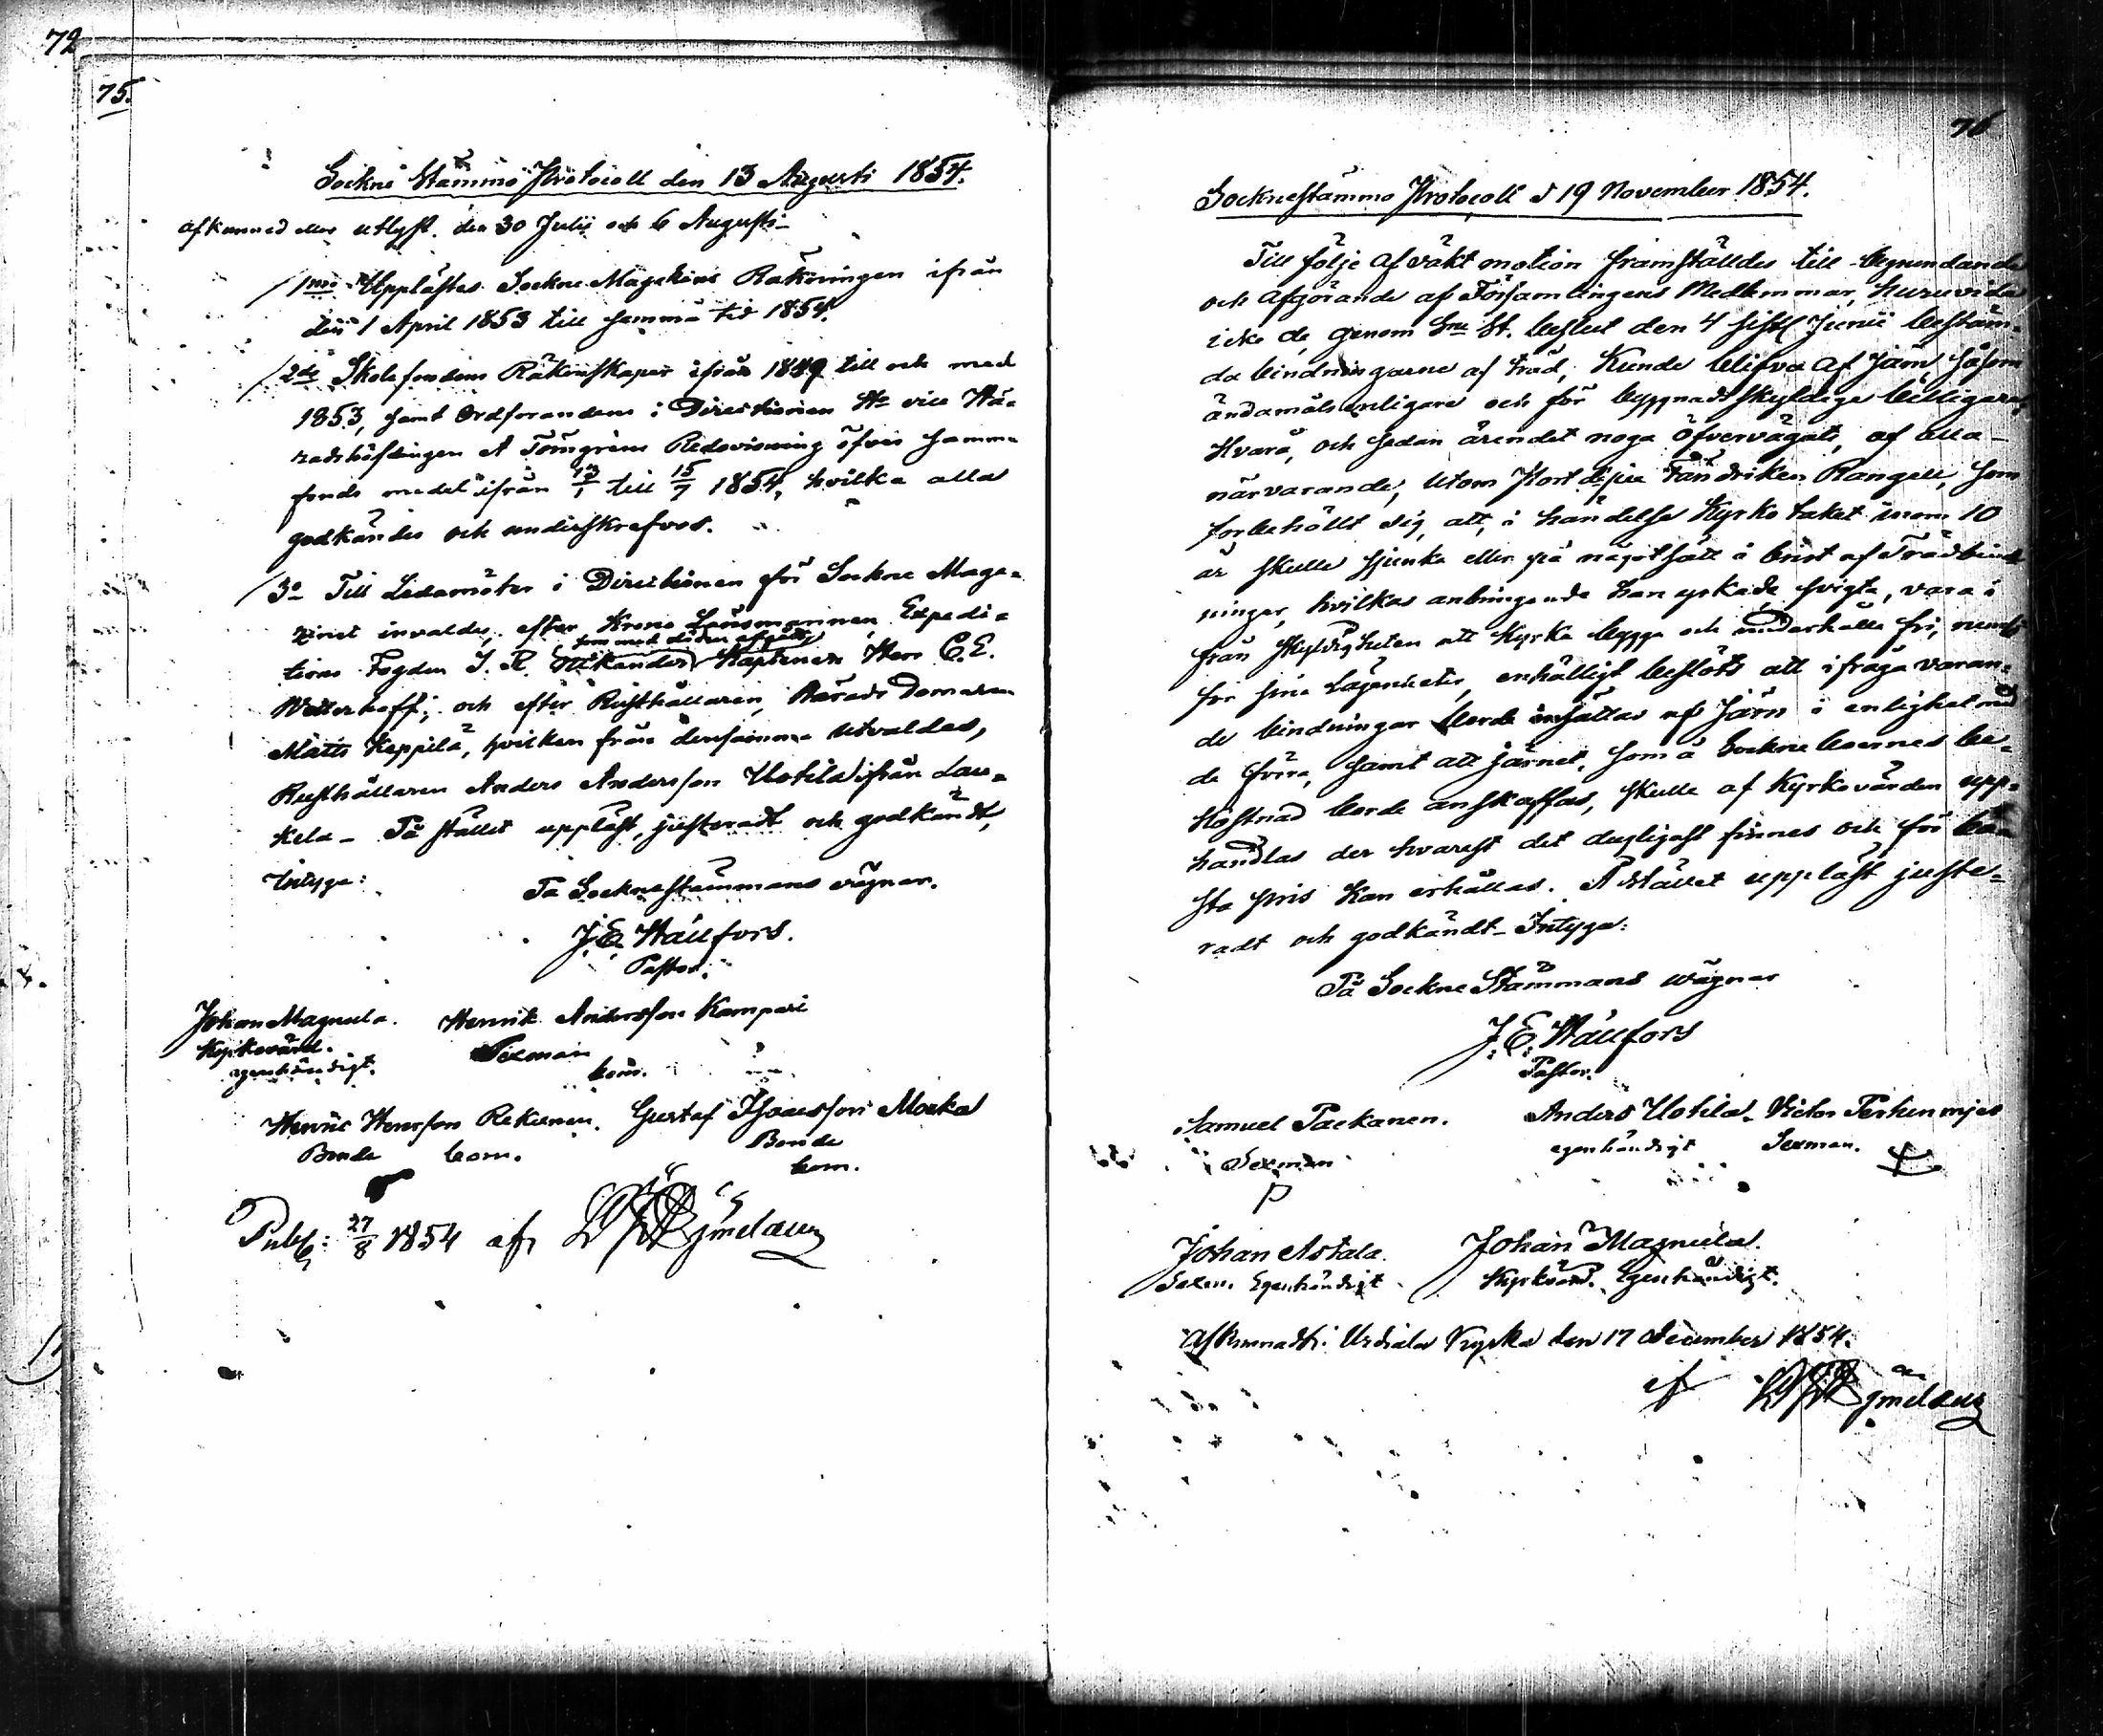 72
75.
Sockne Stämmo Protocoll den 13 Augusti 1854.
afkunnad eller utlyst den 30 Julii och 6 Augusti
1mo Upplästes Sockne Magasins Räkningen ifrån
den 1 April 1853 till samma tid 1854.
2do Skolefondens Räkenskaper ifrån 1849 till och med
1853, samt Ordförandens i Directionen Hr vice Hä-
radshöfdingen A Törngrens Redovisning öfver samma
fonds medel ifrån till 15/7 1854, hvilka alla
godkändes och underskrefvos.
3o Till Ledamöter i Directionen för Sockne Maga-
zinet invaldes, efter Krono Länsmannen, Expedi-
som med döden afgått
tions Fogden J. R. Kaptenen Herr C. E.
Wetterhoff; och efter Rusthållaren, Härads Domaren
Matts Keppilä, hvilken från densamma utvaldes,
Rusthållaren Anders Andersson Uotila ifrån Lau-
kela - På stället uppläst, justeradt och godkändt,
Intyga:
På Socknestämmans vägnar.
J. E. Hällfors.
Pastor.
Johan Magnula. Henrik Andersson Kampari
Kyrkovärd. Sexman
egenhändigt. bom.
Henric Henrsson Rekunen. Gustaf Isaacsson Moska
Bonde bom. Bonde
bom.
Publ: 27/8 1854 af
76
Socknestämmo Protocoll d 19 November 1854.
Till följe af väkt motion framställdes till begrundande
och afgörande af Församlingens Medlemmar, huruvida
icke de genom Sne St. beslut den 4 sistl Junii bestäm-
da bindningarne af träd, kunde blifva af järn såsom
ändamålsenligare och för byggnadsskyldige billigare,
Hvarå, och sedan ärendet noga öfvervägats, af alla
närvarande, utom Fändriken Rangell, som
förbehållt sig, att, i händelse Kyrko taket inom 10
år skulle sjunka eller på något sätt i brist af Trädbind-
ningar, hvilkas anbringande han yrkade, svigta, vara i
från skyldigheten att Kyrka bygga och underhålla fri,
för sine Lägenheter, enhälligt beslöts att ifråga varan-
de bindningar borde insättas af Järn i enlighet med
de förra, samt att järnet, som å Sockneboernes be-
kostnad borde anskaffas, skulle af Kyrkovärden upp-
handlas der hvarest det dugligast finnes och för bä-
sta pris kan erhållas. På stället uppläst juste-
radt och godkändt - Intyga:
På Sockne Stämmans vägnar
J. E. Hällfors
Pastor.
Samuel Paekanen. Anders Uotila. Victor Perhenmies
Sexman egenhändigt Sexman.
Johan Astala. Johan Magnula.
Sexm. Egenhändigt Kyrkvärd. Egenhändigt.
Afkunnadt i Urdiala Kyrka den 17 December 1854.
af